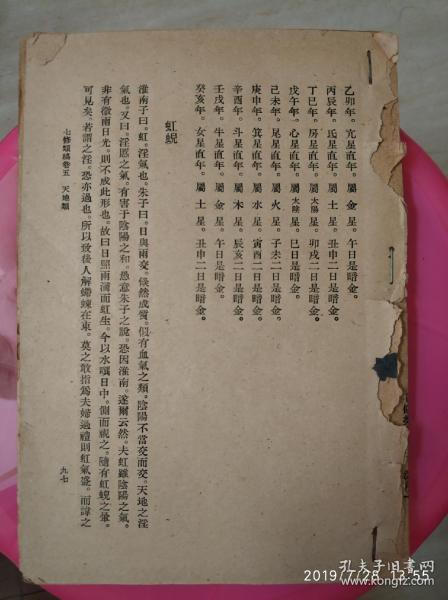 乙卯年。亢星直年。屬金星。午日是暗金。
丙辰年。氐星直年。屬土星。丑申二日是暗金。
丁巳年。房星直年。屬太陽星。卯戌二日是暗金。
戊午年。心星直年。屬太陰星。巳日是暗金。
己未年。尾星直年。屬火星。子未二日是暗金。
庚申年。箕星直年。屬水星。寅酉二日是暗金。
辛酉年。斗星直年。屬木星。辰亥二日是暗金。
壬戌年。牛星直年。屬金星。午日是暗金。
癸亥年。女星直年。屬土星。丑申二日是暗金。
虹蜺
淮南子曰。虹。淫氣也。朱子曰。日與雨交。倏然成質。似有血氣之類。陰陽不當交而交。天地之淫
氣也。又曰。淫慝之氣。有害于陰陽之和。愚意朱子之說。恐因淮南。遂爾云然。夫虹雖陰陽之氣。
非有微雨日光。則不成此形也。故曰日照雨滴而虹生。今以水噀日中。側而視之。隨有虹蜺之暈。
可見矣。若謂之淫。恐亦過也。所以致後人解蝃蝀在東。莫之敢指爲夫婦過禮則虹氣盛。而諱之
七修類稿卷五 天地類 九七
2019/7/25 13:55
孔夫子旧书网
www.kongfz.com